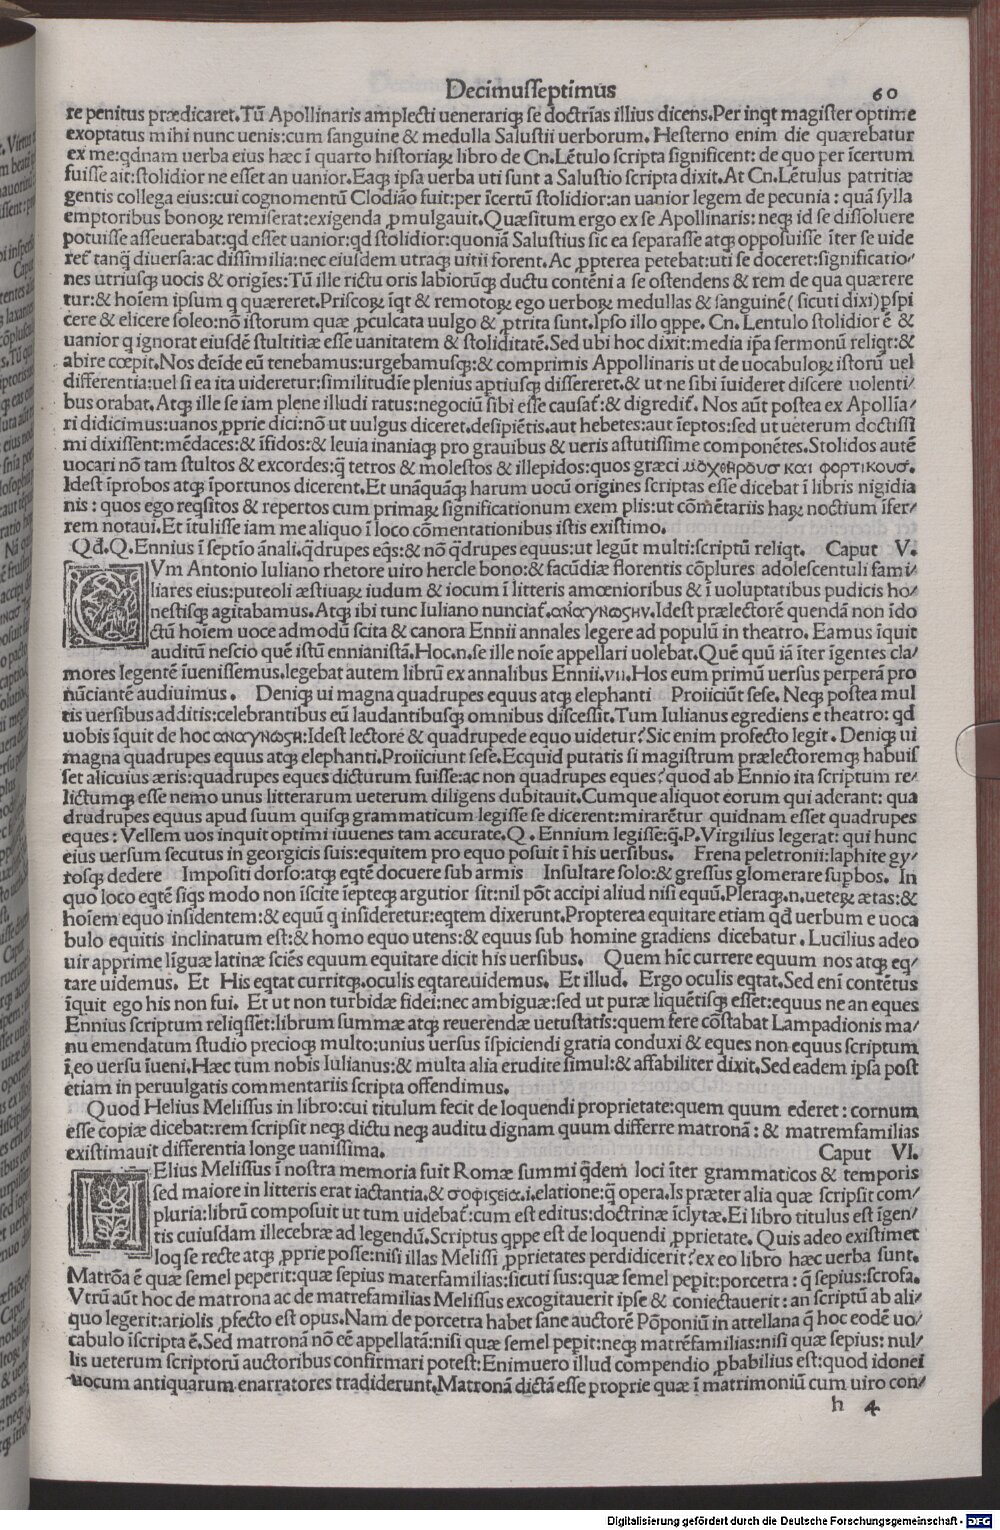 Decimusseptimus 60
re penitus prædicaret.Tũ Apollinaris amplecti venerariqȝ se doctrĩas illius dicens.Per inqt magister optime
exoptatus mihi nunc uenis:cum sanguine & medulla Salustii uerborum. Hesterno enim die quærebatur
ex me:qdnam uerba eius hæc ĩ quarto historiaꝝ libro de Cn.Lẽtulo scripta significent: de quo per ĩcertum
fuisse ait:stolidior ne esset an uanior.Eaqȝ ipsa uerba uti sunt a Salustio scripta dixit.At Cn.Lẽtulus patritiæ
gentis collega eius:cui cognomentũ Clodião fuit:per ĩcertũ stolidior:an uanior legem de pecunia : quã sylla
emptoribus bonoꝝ remiserat:exigenda ꝓmulgauit.Quæsitum ergo ex se Apollinaris: neqȝ id se dissoluere
potuisse asseuerabat:qd esset uanior:qd stolidior:quoniã Salustius sic ea separasse atqȝ opposuisse ĩter se uide
ret̃ tanq̃ diuersa:ac dissimilia:nec eiusdem utraqȝ uitii forent.Ac ꝓpterea petebat:uti se doceret:significatio/
nes utriusqȝ uocis & origĩes:Tũ ille rictu oris labiorũqȝ ductu contẽni a se ostendens & rem de qua quærere
tur:& hoĩem ipsum q quæreret.Priscoꝝ ĩqt & remotoꝝ ego uerboꝝ medullas & sanguinẽ(sicuti dixi)ꝑspi
cere & elicere soleo:nõ istorum quæ ꝓculcata uulgo & ꝓtrita sunt.Ipso illo qppe. Cn. Lentulo stolidior ẽ &
uanior q ignorat eiusdẽ stultitiæ esse uanitatem & stoliditatẽ.Sed ubi hoc dixit:media ip̃a sermonũ reliqt:&
abire cœpit.Nos deĩde eũ tenebamus:urgebamusqȝ:& comprimis Appollinaris ut de uocabuloꝝ istorũ uel
differentia:uel si ea ita uideretur:similitudĩe plenius aptiusqȝ dissereret.& ut ne sibi ĩuideret discere uolenti/
bus orabat.Atqȝ ille se iam plene illudi ratus:negociũ sibi esse causat̃:& digredit̃. Nos aũt postea ex Apollĩa/
ri didicimus:uanos ꝓprie dici:nõ ut uulgus diceret.desipiẽtis.aut hebetes:aut ĩeptos:sed ut ueterum doctissĩ
mi dixissent:mẽdaces:& ĩfidos:& leuia inaniaqȝ pro grauibus & ueris astutissime componẽtes.Stolidos autẽ
uocari nõ tam stultos & excordes:q̃ tetros & molestos & illepidos:quos græci μοχθηρουσ και φορτικουσ.
Idest ĩprobos atqȝ ĩportunos dicerent.Et unãquãqȝ harum uocũ origines scriptas esse dicebat ĩ libris nigidia
nis : quos ego reqsitos & repertos cum primaꝝ significationum exem plis:ut cõmẽtariis haꝝ noctium ĩfer/
rem notaui.Et ĩtulisse iam me aliquo ĩ loco cõmentationibus istis existimo.
Qd̃.Q.Ennius ĩ septĩo ãnali.q̃drupes eqs:& nõ q̃drupes equus:ut legũt multi:scriptũ reliqt. Caput V.
CVm Antonio Iuliano rhetore uiro hercle bono:& facũdiæ florentis cõplures adolescentuli fami/
liares eius:puteoli æstiuaꝝ iudum & iocum ĩ litteris amœnioribus & ĩ uoluptatibus pudicis ho/
nestisqȝ agitabamus.Atqȝ ibi tunc Iuliano nunciat̃.αναγνωσην.Idest prælectorẽ quendã non ĩdo
ctũ hoĩem uoce admodũ scita & canora Ennii annales legere ad populũ in theatro. Eamus ĩquit
auditũ nescio quẽ istũ ennianistã.Hoc.n.se ille noĩe appellari uolebat.Quẽ quũ iã ĩter ĩgentes cla/
mores legentẽ ĩuenissemus.legebat autem librũ ex annalibus Ennii.vii.Hos eum primũ uersus perperã pro
nũciantẽ audiuimus. Deniqȝ ui magna quadrupes equus atqȝ elephanti Proiiciũt sese. Neqȝ postea mul
tis uersibus additis:celebrantibus eũ laudantibusqȝ omnibus discessit.Tum Iulianus egrediens e theatro: qd
uobis ĩquit de hoc αναγνωσῃ:Idest lectorẽ & quadrupede equo uidetur?Sic enim profecto legit. Deniqȝ ui
magna quadrupes equus atqȝ elephanti.Proiiciunt sese.Ecquid putatis si magistrum prælectoremqȝ habuis
set alicuius æris:quadrupes eques dicturum fuisse:ac non quadrupes eques?quod ab Ennio ita scriptum re/
lictumqȝ esse nemo unus litterarum ueterum diligens dubitauit.Cumque aliquot eorum qui aderant: qua
drudrupes equus apud suum quisqȝ grammaticum legisse se dicerent:mirarẽtur quidnam esset quadrupes
eques : Vellem uos inquit optimi iuuenes tam accurate.Q . Ennium legisse:q̃.P.Virgilius legerat: qui hunc
eius uersum secutus in georgicis suis:equitem pro equo posuit ĩ his uersibus. Frena peletronii:laphite gy/
rosqȝ dedere Impositi dorso:atqȝ eqtẽ docuere sub armis Insultare solo:& gressus glomerare supbos. In
quo loco eqtẽ siqs modo non ĩscite ĩepteqȝ argutior sit:nil põt accipi aliud nisi equũ.Pleraqȝ.n.ueteꝝ ætas:&
hoĩem equo insidentem:& equũ q insideretur:eqtem dixerunt.Propterea equitare etiam qd̃ uerbum e uoca
bulo equitis inclinatum est:& homo equo utens:& equus sub homine gradiens dicebatur. Lucilius adeo
uir apprime lĩguæ latinæ sciẽs equum equitare dicit his uersibus. Quem hĩc currere equum nos atqȝ eq/
tare uidemus. Et His eqtat curritqȝ.oculis eqtare.uidemus. Et illud. Ergo oculis eqtat.Sed enĩ contẽtus
ĩquit ego his non fui. Et ut non turbidæ fidei:nec ambiguæ:sed ut puræ liquẽtisqȝ esset:equus ne an eques
Ennius scriptum reliqsset:librum summæ atqȝ reuerendæ uetustatis:quem fere cõstabat Lampadionis ma/
nu emendatum studio precioqȝ multo:unius uersus ĩspiciendi gratia conduxi & eques non equus scriptum
ĩ eo uersu ĩueni.Hæc tum nobis Iulianus:& multa alia erudite simul:& affabiliter dixit.Sed eadem ipsa post
etiam in peruulgatis commentariis scripta offendimus.
Quod Helius Melissus in libro:cui titulum fecit de loquendi proprietate:quem quum ederet : cornum
esse copiæ dicebat:rem scripsit neqȝ dictu neqȝ auditu dignam quum differre matronã : & matremfamilias
existimauit differentia longe uanissima. Caput VI.
HElius Melissus ĩ nostra memoria fuit Romæ summi q̃dem loci ĩter grammaticos & temporis
sed maiore in litteris erat iactantia.& σοφιςεια.i.elatione:q̃ opera.Is præter alia quæ scripsit com/
pluria:librũ composuit ut tum uidebat̃:cum est editus:doctrinæ ĩclytæ.Ei libro titulus est ĩgen/
tis cuiusdam illecebræ ad legendũ.Scriptus qppe est de loquendi ꝓprietate. Quis adeo existimet
loq se recte atqȝ ꝓprie posse:nisi illas Melissi ꝓprietates perdidicerit?ex eo libro hæc uerba sunt.
Matrõa ẽ quæ semel peperit:quæ sepius materfamilias:sicuti sus:quæ semel pepit:porcetra : q̃ sepius:scrofa.
Vtrũ aũt hoc de matrona ac de matrefamilias Melissus excogitauerit ipse & coniectauerit : an scriptũ ab ali/
quo legerit:ariolis ꝓfecto est opus.Nam de porcetra habet sane auctorẽ Põponiũ in attellana q̃ hoc eodẽ uo/
cabulo ĩscripta ẽ.Sed matronã nõ cẽ appellatã:nisi quæ semel pepit:neqȝ matrẽfamilias:nisi quæ sepius: nul/
lis ueterum scriptorũ auctoribus confirmari potest:Enimuero illud compendio ꝓbabilius est:quod idonei
uocum antiquarum enarratores tradiderunt.Matronã dictã esse proprie quæ ĩ matrimoniũ cum uiro con/
h 4
Digitalisierung gefördert durch die Deutsche Forschungsgemeinschaft - DFG